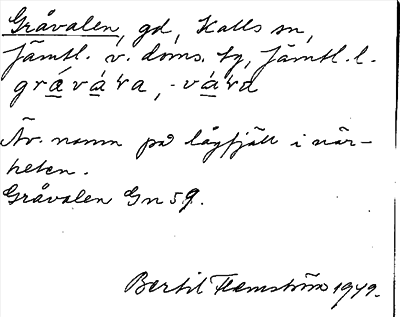 Gråvalen, gd, Kalls sn,
Jämtl. v. doms. tg, Jämtl. l.
Äv. namn på lågfjäll i när-
heten.
Gråvalen Gn 59.
Bertil Flemström 1949.